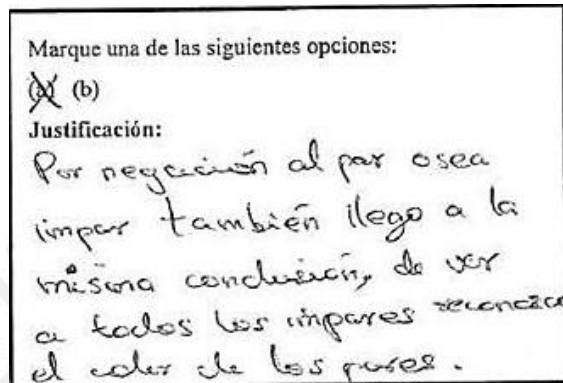 Marque una de las siguientes opciones:
(a) (b)
Justificación:
Por negación al par osea
impar también llego a la
misma conclusión, de ver
a todos los impares reconozco
el color de los pares.